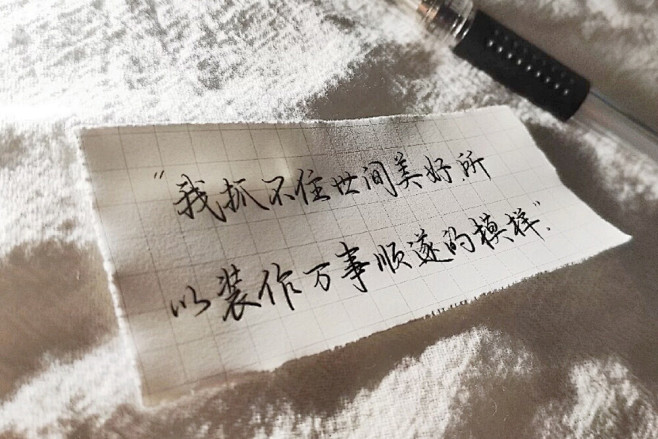 “我抓不住世间美好.所
以装作万事顺遂的模样.”